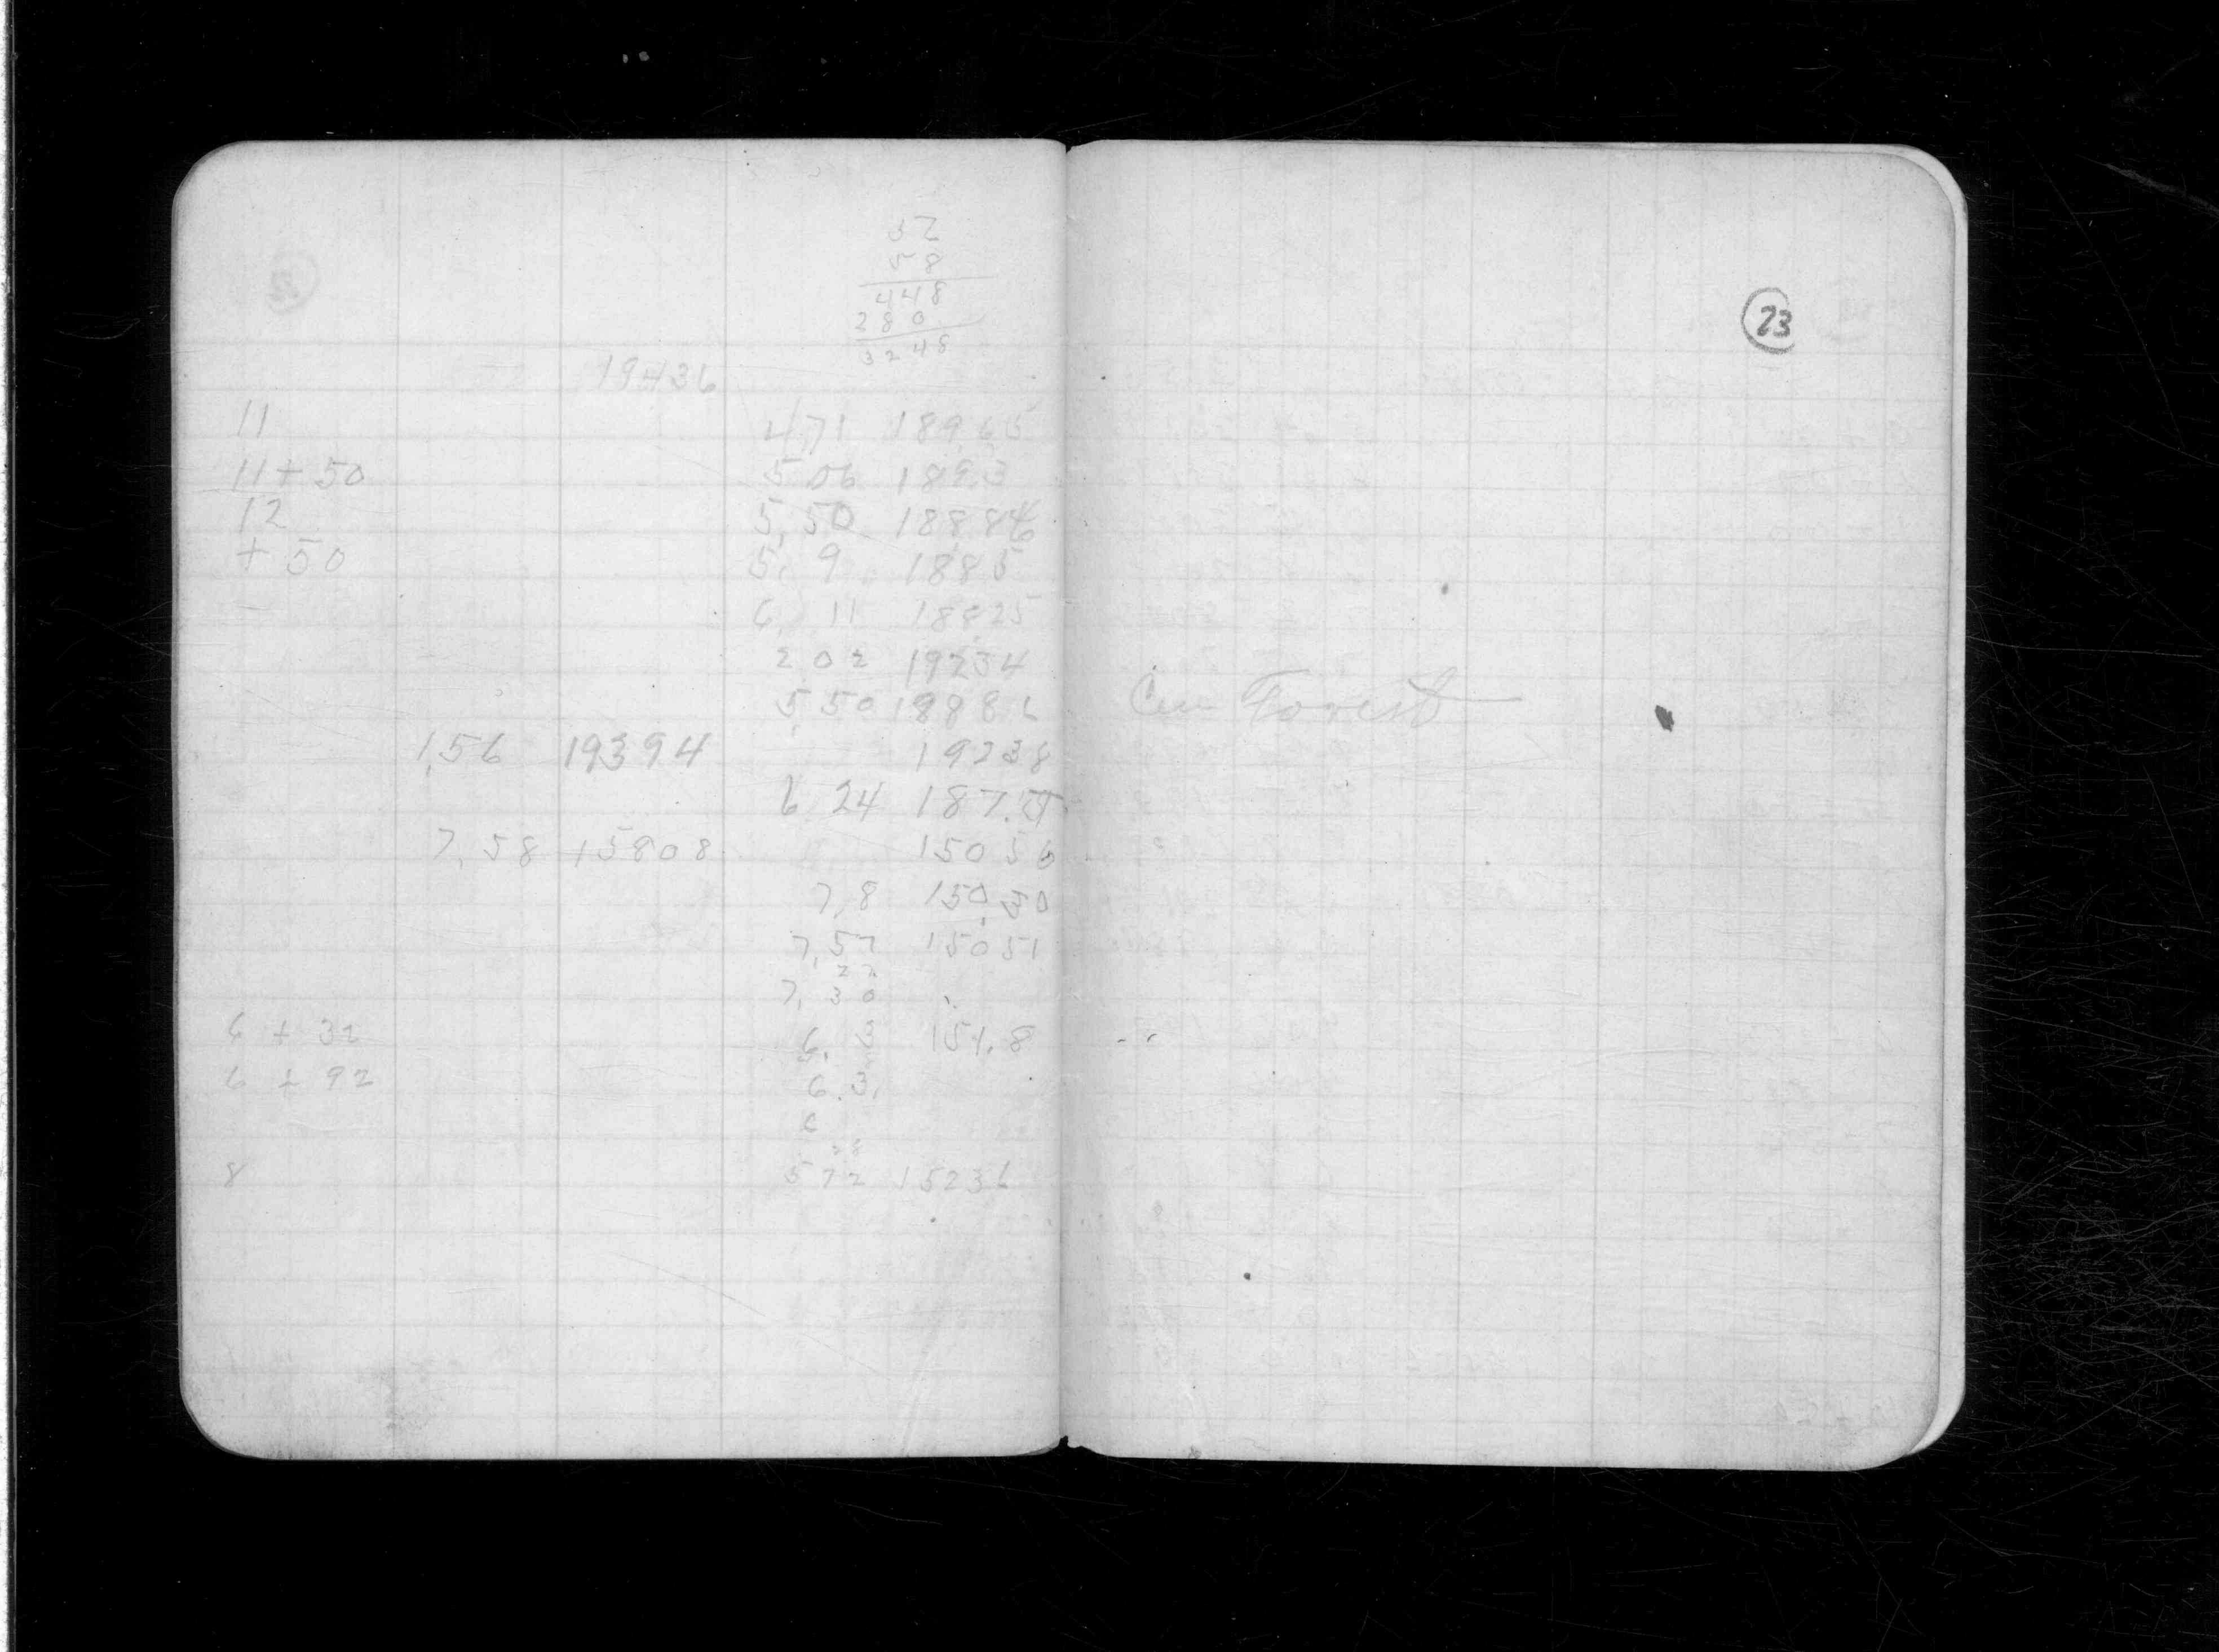 58
448
280
3248
19436
11 4,71 18965
11+50 5 06 189.3
12 5,50
+50 5, 9 1885
- 6, 11 18825
202 19234
5,50 19886
1,56 19394 19238
6 24
7,58 15808 15056
7,8 150,50
7,57 15051
27
7, 30
6 + 32 6. 3 151.8
6 + 92 6.3,
6
8 572 15236
23
Forest